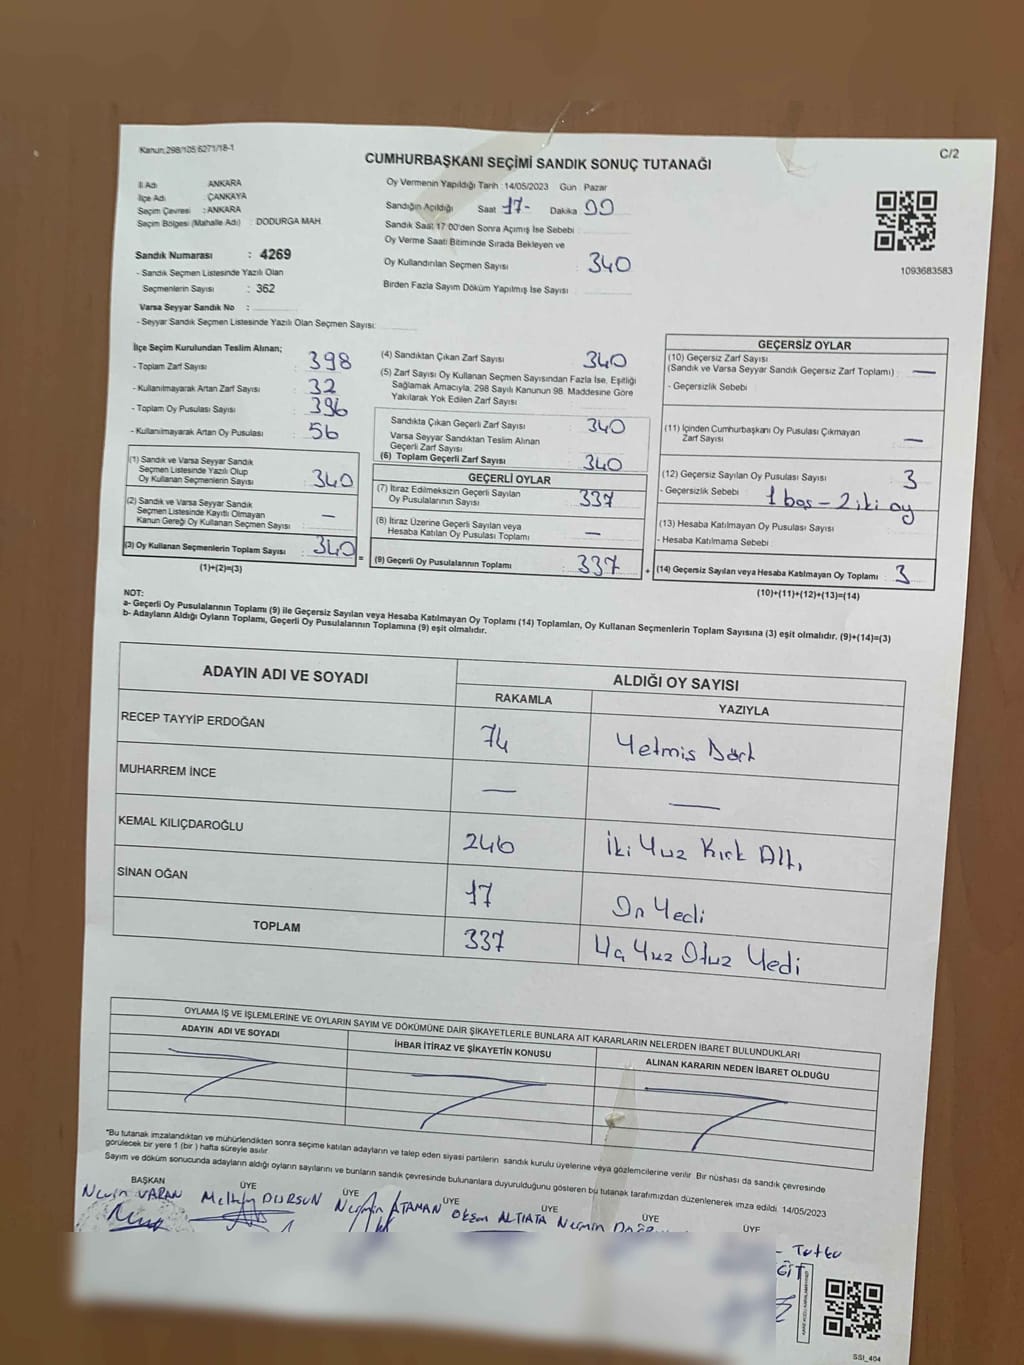 Kanun:298/105 6271/18-1
C/2
CUMHURBAŞKANI SEÇİMİ SANDIK SONUÇ TUTANAĞI
İl Adı ANKARA
İlçe Adı ÇANKAYA
Seçim Çevresi : ANKARA
Seçim Bölgesi (Mahalle Adı) : DODURGA MAH.
Sandık Numarası : 4269
- Sandık Seçmen Listesinde Yazılı Olan
Seçmenlerin Sayısı : 362
Varsa Seyyar Sandık No :
- Seyyar Sandık Seçmen Listesinde Yazılı Olan Seçmen Sayısı:
Oy Vermenin Yapıldığı Tarih : 14/05/2023 Gün Pazar
Sandığın Açıldığı Saat 17- Dakika 00
Sandık Saat 17:00'den Sonra Açımış İse Sebebi :
Oy Verme Saati Bitiminde Sırada Bekleyen ve
Oy Kullandırılan Seçmen Sayısı : 340
Birden Fazla Sayım Döküm Yapılmış İse Sayısı :
1093683583
İlçe Seçim Kurulundan Teslim Alınan;
- Toplam Zarf Sayısı : 398
- Kullanılmayarak Artan Zarf Sayısı : 32
- Toplam Oy Pusulası Sayısı : 396
- Kullanılmayarak Artan Oy Pusulası : 56
(1) Sandık ve Varsa Seyyar Sandık
Seçmen Listesinde Yazılı Olup
Oy Kullanan Seçmenlerin Sayısı : 340
(2) Sandık ve Varsa Seyyar Sandık
Seçmen Listesinde Kayıtlı Olmayan
Kanun Gereği Oy Kullanan Seçmen Sayısı : —
(3) Oy Kullanan Seçmenlerin Toplam Sayısı : 340
(1)+(2)=(3)
(4) Sandıktan Çıkan Zarf Sayısı : 340
(5) Zarf Sayısı Oy Kullanan Seçmen Sayısından Fazla İse, Eşitliği
Sağlamak Amacıyla, 298 Sayılı Kanunun 98. Maddesine Göre
Yakılarak Yok Edilen Zarf Sayısı :
Sandıkta Çıkan Geçerli Zarf Sayısı : 340
Varsa Seyyar Sandıktan Teslim Alınan
Geçerli Zarf Sayısı
(6) Toplam Geçerli Zarf Sayısı : 340
GEÇERLİ OYLAR
(7) İtiraz Edilmeksizin Geçerli Sayılan
Oy Pusulalarının Sayısı : 337
(8) İtiraz Üzerine Geçerli Sayılan veya
Hesaba Katılan Oy Pusulası Toplamı : —
=
(9) Geçerli Oy Pusulalarının Toplamı : 337
+
GEÇERSİZ OYLAR
(10) Geçersiz Zarf Sayısı
(Sandık ve Varsa Seyyar Sandık Geçersiz Zarf Toplamı) : —
- Geçersizlik Sebebi :
(11) İçinden Cumhurbaşkanı Oy Pusulası Çıkmayan
Zarf Sayısı : —
(12) Geçersiz Sayılan Oy Pusulası Sayısı : 3
- Geçersizlik Sebebi : 1 boş - 2 iki oy
(13) Hesaba Katılmayan Oy Pusulası Sayısı :
- Hesaba Katılmama Sebebi :
(14) Geçersiz Sayılan veya Hesaba Katılmayan Oy Toplamı : 3
(10)+(11)+(12)+(13)=(14)
NOT:
a- Geçerli Oy Pusulalarının Toplamı (9) ile Geçersiz Sayılan veya Hesaba Katılmayan Oy Toplamı (14) Toplamları, Oy Kullanan Seçmenlerin Toplam Sayısına (3) eşit olmalıdır. (9)+(14)=(3)
b- Adayların Aldığı Oyların Toplamı, Geçerli Oy Pusulalarının Toplamına (9) eşit olmalıdır.
ADAYIN ADI VE SOYADI
ALDIĞI OY SAYISI
RAKAMLA YAZIYLA
RECEP TAYYİP ERDOĞAN 74 Yetmiş Dört
MUHARREM İNCE — —
KEMAL KILIÇDAROĞLU 246 İki Yüz Kırk Altı
SİNAN OĞAN 17 On Yedi
TOPLAM 337 Üç Yüz Otuz Yedi
OYLAMA İŞ VE İŞLEMLERİNE VE OYLARIN SAYIM VE DÖKÜMÜNE DAİR ŞİKAYETLERLE BUNLARA AİT KARARLARIN NELERDEN İBARET BULUNDUKLARI
ADAYIN ADI VE SOYADI İHBAR İTİRAZ VE ŞİKAYETİN KONUSU ALINAN KARARIN NEDEN İBARET OLDUĞU
*Bu tutanak imzalandıktan ve mühürlendikten sonra seçime katılan adayların ve talep eden siyasi partilerin sandık kurulu üyelerine veya gözlemcilerine verilir. Bir nüshası da sandık çevresinde
görülecek bir yere 1 (bir) hafta süreyle asılır.
Sayım ve döküm sonucunda adayların aldığı oyların sayılarını ve bunların sandık çevresinde bulunanlara duyurulduğunu gösteren bu tutanak tarafımızdan düzenlenerek imza edildi. 14/05/2023
BAŞKAN ÜYE ÜYE ÜYE ÜYE ÜYE ÜYE
VARAN DURSUN ATAMAN ALTIATA Nermin
SSI_404